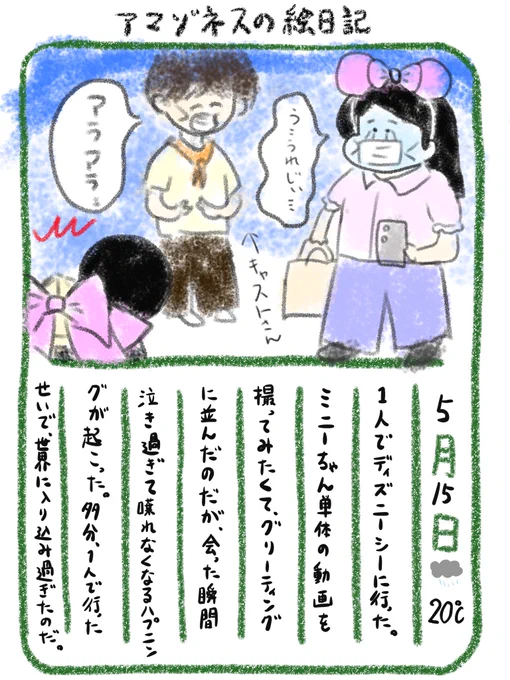 アマゾネスの絵日記
うぅうれじい…
アラアラ。
↑キャストさん
5月15日 20℃
1人でディズニーシーに行った。
ミニーちゃん単体の動画を
撮ってみたくて、グリーティング
に並んだのだが、会った瞬間
泣き過ぎて喋れなくなるハプニン
グが起こった。多分、1人で行った
せいで、世界に入り込み過ぎたのだ。